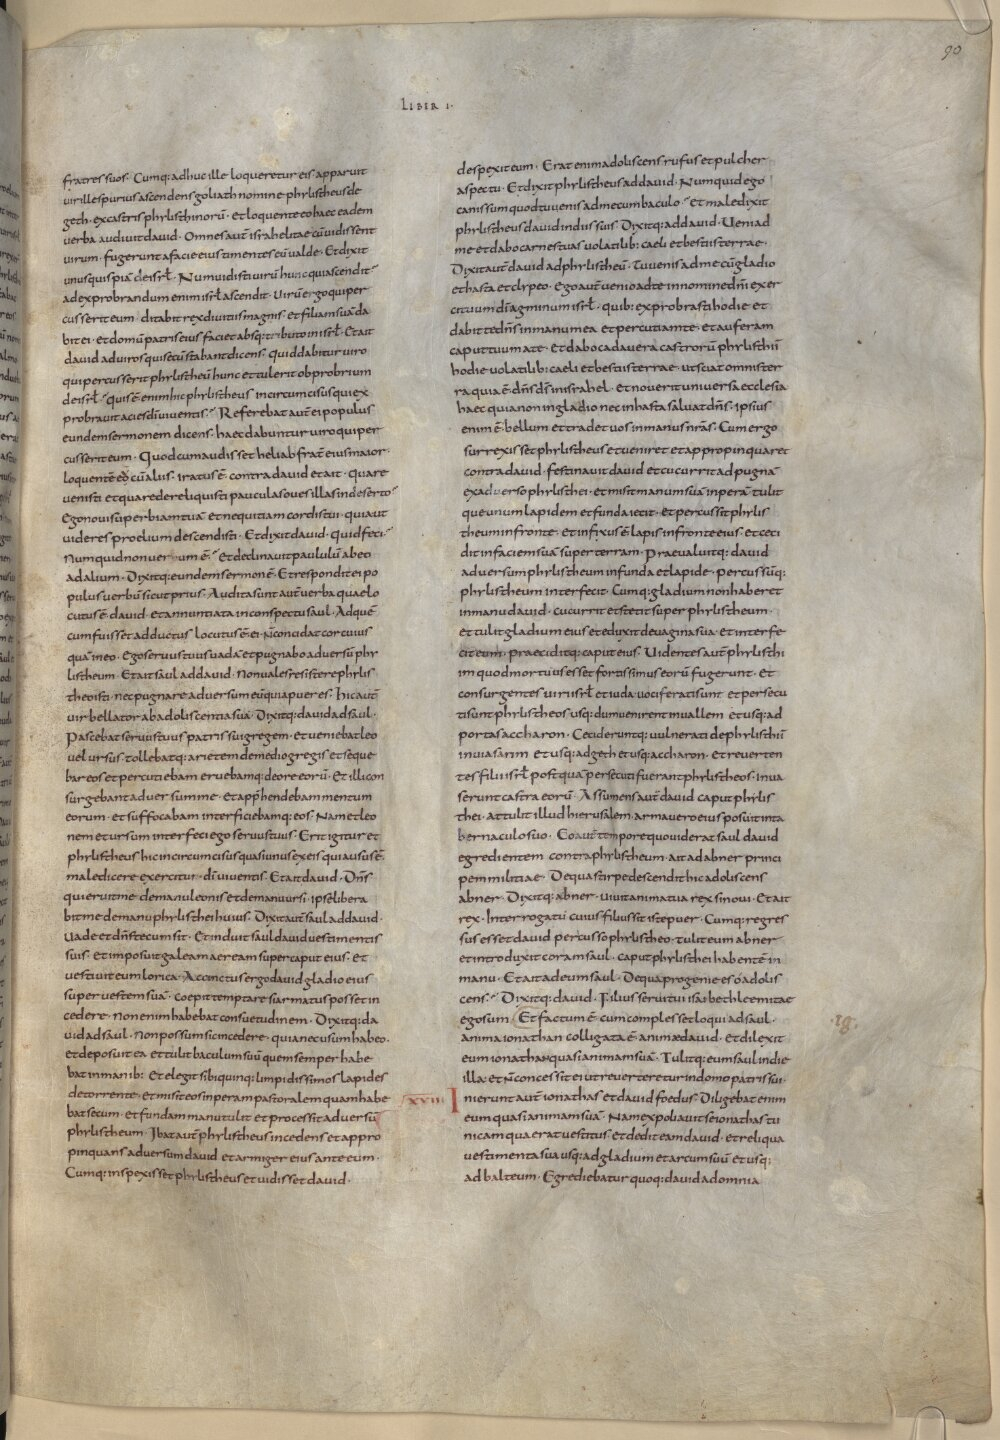 90
LIBER I·
fratres suos· Cumq: adhuc ille loqueretur eis apparuit
vir ille spurius ascendens goliath nomine phylistheus de
geth· ex castris phylisthinorū· et loquente eo haec eadem
verba audivit david· Omnes aūt israhelitae cū vidissent
virum· fugerunt a facie eius timentes eū valde· Et dixit
unusquispiā de isrł· Num vidisti virū hunc qui ascendit
ad exprobrandum enim isrł ascendit· Virū ergo qui per
cusserit eum· ditabit rex divitiis magnis· et filiam suā da
bit ei· et domū patris eius faciet absq: tributo in isrł· Et ait
david ad viros qui secū stabant dicens· Quid dabitur viro
qui percusserit phylistheū hunc et tulerit obprobrium
de isrł· quis ē enim hic phylistheus incircumcisus qui ex
probravit acies dī viventis· Referebat aūt ei populus
eundem sermonem dicens· haec dabuntur viro qui per
cusserit eum· Quod cum audisset heliab frat̄ eius maior·
loquente eo cū aliis· iratus ē contra david et ait· quare
venisti et quare dereliquisti pauculas oves illas in deserto·
Ego novi superbiam tuā et nequitiam cordis tui· quia ut
videres proelium descendisti· Et dixit david· quid feci·
Numquid non verum ē· Et declinavit paululū ab eo
ad alium· Dixitq: eundem sermonē· Et respondit ei po
pulus verbū sicut prius· Audita sunt verba quae lo
cutus ē david· et annuntiata in conspectu saul· Ad quē
cum fuisset adductus locutus ē ei· N̄ concidat cor cuius
quā in eo· Ego servus tuus vadā et pugnabo adversū phy
listheum· Et ait saul ad david· Non vales resistere phylis
theo isti· nec pugnare adversum eū quia puer es· hic aūt
vir bellator ab adoliscentia sua· Dixitq: david ad saul·
Pascebat servus tuus patris sui gregem· et veniebat leo
vel ursus· tollebatq: arietem de medio gregis et seque
bar eos et percutiebam eruebamq: de ore eorū· Et illi con
surgebant adversum me· et app̄hendebam mentum
eorum· et suffocabam interficiebamq: eos· Nam et leo
nem et ursum interfeci ego servus tuus· Erit igitur et
phylistheus hic incircumcisus quasi unus ex eis qui ausus ē
maledicere exercitui dī viventis· Et ait david· Dn̄s
qui eruit me de manu leonis et de manu ursi· ipse libera
bit me de manu phylisthei huius· Dixit aūt saul ad david·
Vade et dn̄s tecum sit· Et induit saul david vestimentis
suis· et imposuit galeam aeream super caput eius· et
vestivit eum lorica· Accinctus ergo david gladio eius
super vestem suā· coepit temptare si armatus posset in
cedere· non enim habebat consuetudinem· Dixitq: da
vid ad saul· Non possum sic incedere· quia nec usum habeo·
et deposuit ea et tulit baculum suū quem semper habe
bat in manib:· Et elegit sibi quinq: limpidissimos lapides
de torrente· et misit eos in peram pastoralem quam habe
bat secum· et fundam manu tulit et processit adversū
phylistheum· Ibat aūt phylistheus incedens et appro
pinquans adversum david et armiger eius ante eum·
Cumq: inspexisset phylistheus et vidisset david·
despexit eum· Erat enim adoliscens rufus et pulcher
aspectu· Et dixit phylistheus ad david· Numquid ego
canis sum quod tu venis ad me cum baculo· Et maledixit
phylistheus david in diis suis· Dixitq: ad david· Veni ad
me et dabo carnes tuas volatilib: caeli et bestiis terrae·
Dixit aūt david ad phylistheū· Tu venis ad me cū gladio
et hasta et clypeo· Ego aūt venio ad te in nomine dn̄i exer
cituum dī agminum isrł· quib: exprobrasti hodie· et
dabit te dn̄s in manu mea et percutiam te· et auferam
caput tuum a te· Et dabo cadavera castrorū phylisthiī
hodie volatilib: caeli et bestiis terrae· ut sciat omnis ter
ra quia ē dn̄s ds̄ in israhel· et noverit universa ecclesia
haec quia non in gladio nec in hasta salvat dn̄s· ipsius
enim ē bellum et tradet vos in manus nr̄as· Cum ergo
surrexisset phylistheus et veniret et appropinquaret
contra david· festinavit david et cucurrit ad pugnā
ex adverso phylisthei· et misit manum suā in perā· tulit
que unum lapidem et funda iecit· et percussit phylis
theum in fronte· et infixus ē lapis in fronte eius· et ceci
dit in faciem suā super terram· Praevaluitq: david
adversum phylistheum in funda et lapide· percussūq:
phylistheum interfecit· Cumq: gladium non haberet
in manu david· cucurrit et stetit super phylistheum·
et tulit gladium eius et eduxit de vagina sua· et interfe
cit eum· praeciditq: caput eius· Videntes aūt phylisthi
im quod mortuus esset fortissimus eorū fugerunt· Et
consurgentes viri isrł et iuda vociferati sunt et persecu
ti sunt phylistheos usq: dum venirent in vallem et usq: ad
portas accharon· Cecideruntq: vulnerati de phylisthiī
in via sarim et usq: ad geth et usq: accharon· Et reverten
tes filii isrł postquā persecuti fuerant phylistheos· inva
serunt castra eorū· Assumens aūt david caput phylis
thei· attulit illud hierusalem· arma vero eius posuit in ta
bernaculo suo· Eo aūt tempore quo viderat saul david
egredientem contra phylistheum· ait ad abner princi
pem militiae· De qua stirpe descendit hic adoliscens
abner· Dixitq: abner· vivit anima tua rex si novi· Et ait
rex· Interroga tū cuius filius sit iste puer· Cumq: regres
sus esset david percusso phylistheo· tulit eum abner
et introduxit coram saul· caput phylisthei habentē in
manu· Et ait ad eum saul· De qua progenie es ó adolis
cens· Dixitq: david· Filius servi tui isai bethleemitae
ego sum· Et factum ē cum complesset loqui ad saul·
anima ionathan colligata ē animae david· et dilexit
eum ionathan quasi animam suā· Tulitq: eum saul in die
illa· et n̄ concessit ei ut reverteretur in domo patris sui·
XVIII Inierunt aūt ionathas et david foedus· Diligebat enim
eum quasi animam suā· Nam expoliavit se ionathas tu
nicam qua erat vestitus et dedit eam david· et reliqua
vestimenta sua usq: ad gladium et arcum suū et usq:
ad balteum· Egrediebatur quoq: david ad omnia
·18·